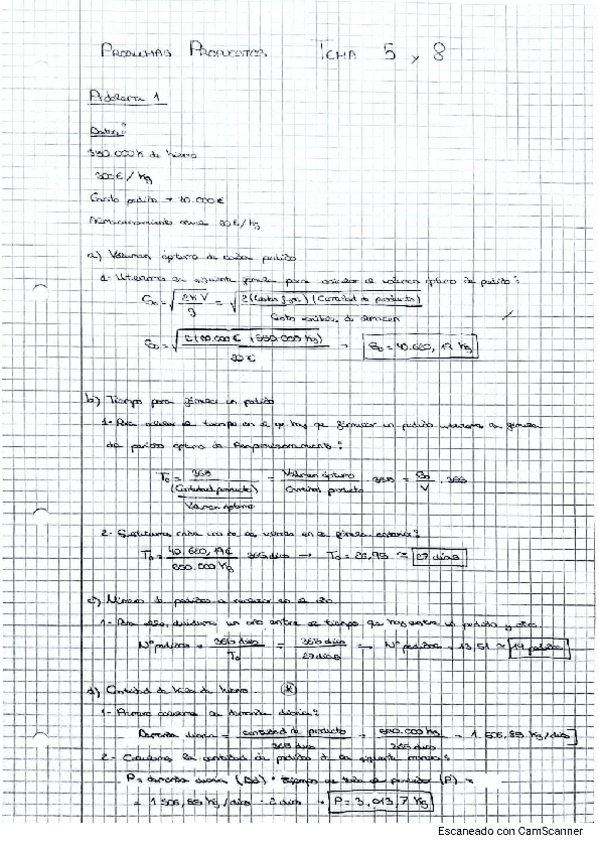 PROBLEMAS PROPUESTOS TEMA 5 y 8
Problema 1
Datos:
550.000 K de hierro
300€/Kg
Costo pedido → 40.000€
Almacenamiento anual €/Kg
a) Volumen óptimo de cada pedido
1- Utilizamos la siguiente fórmula para calcular el volumen óptimo de pedido:
= √ = √ 2(Costes )(Cantidad de producto)
(550.000 Kg) → = 40.680,19 Kg
b) Tiempo para formular un pedido
1- Para calcular el tiempo en el que hay que formular un pedido utilizamos la fórmula
del periodo óptimo de Reaprovisionamiento:
T₀ = 365 / (Cantidad producto) / Volumen óptimo = Volumen óptimo / Cantidad producto · 365 = / V · 365
2- Sustituimos cada uno de los valores en la fórmula anterior:
T₀ = 40.680,19€ / 550.000 Kg 365 días → T₀ = 26,95 ≈ 27 días
c) Número de pedidos a realizar en el año
1- Para ello, dividimos un año entre el tiempo que hay entre un pedido y otro
Nº pedidos = 365 días / T₀ = 365 días / 27 días → Nº pedidos = 13,51 ≈ 14 pedidos
d) Cantidad de kilos de hierro. *
1- Primero calculamos la demanda diaria:
Demanda diaria = cantidad de producto / 365 días = 550.000 Kg / 365 días = 1.506,85 Kg/días
2- Calculamos la cantidad de pedidos de la siguiente manera:
P = demanda diaria · tiempo de de pedidos (P) =
= 1.506,85 Kg/días · 2 días → P = 3.013,7 Kg
Escaneado con CamScanner